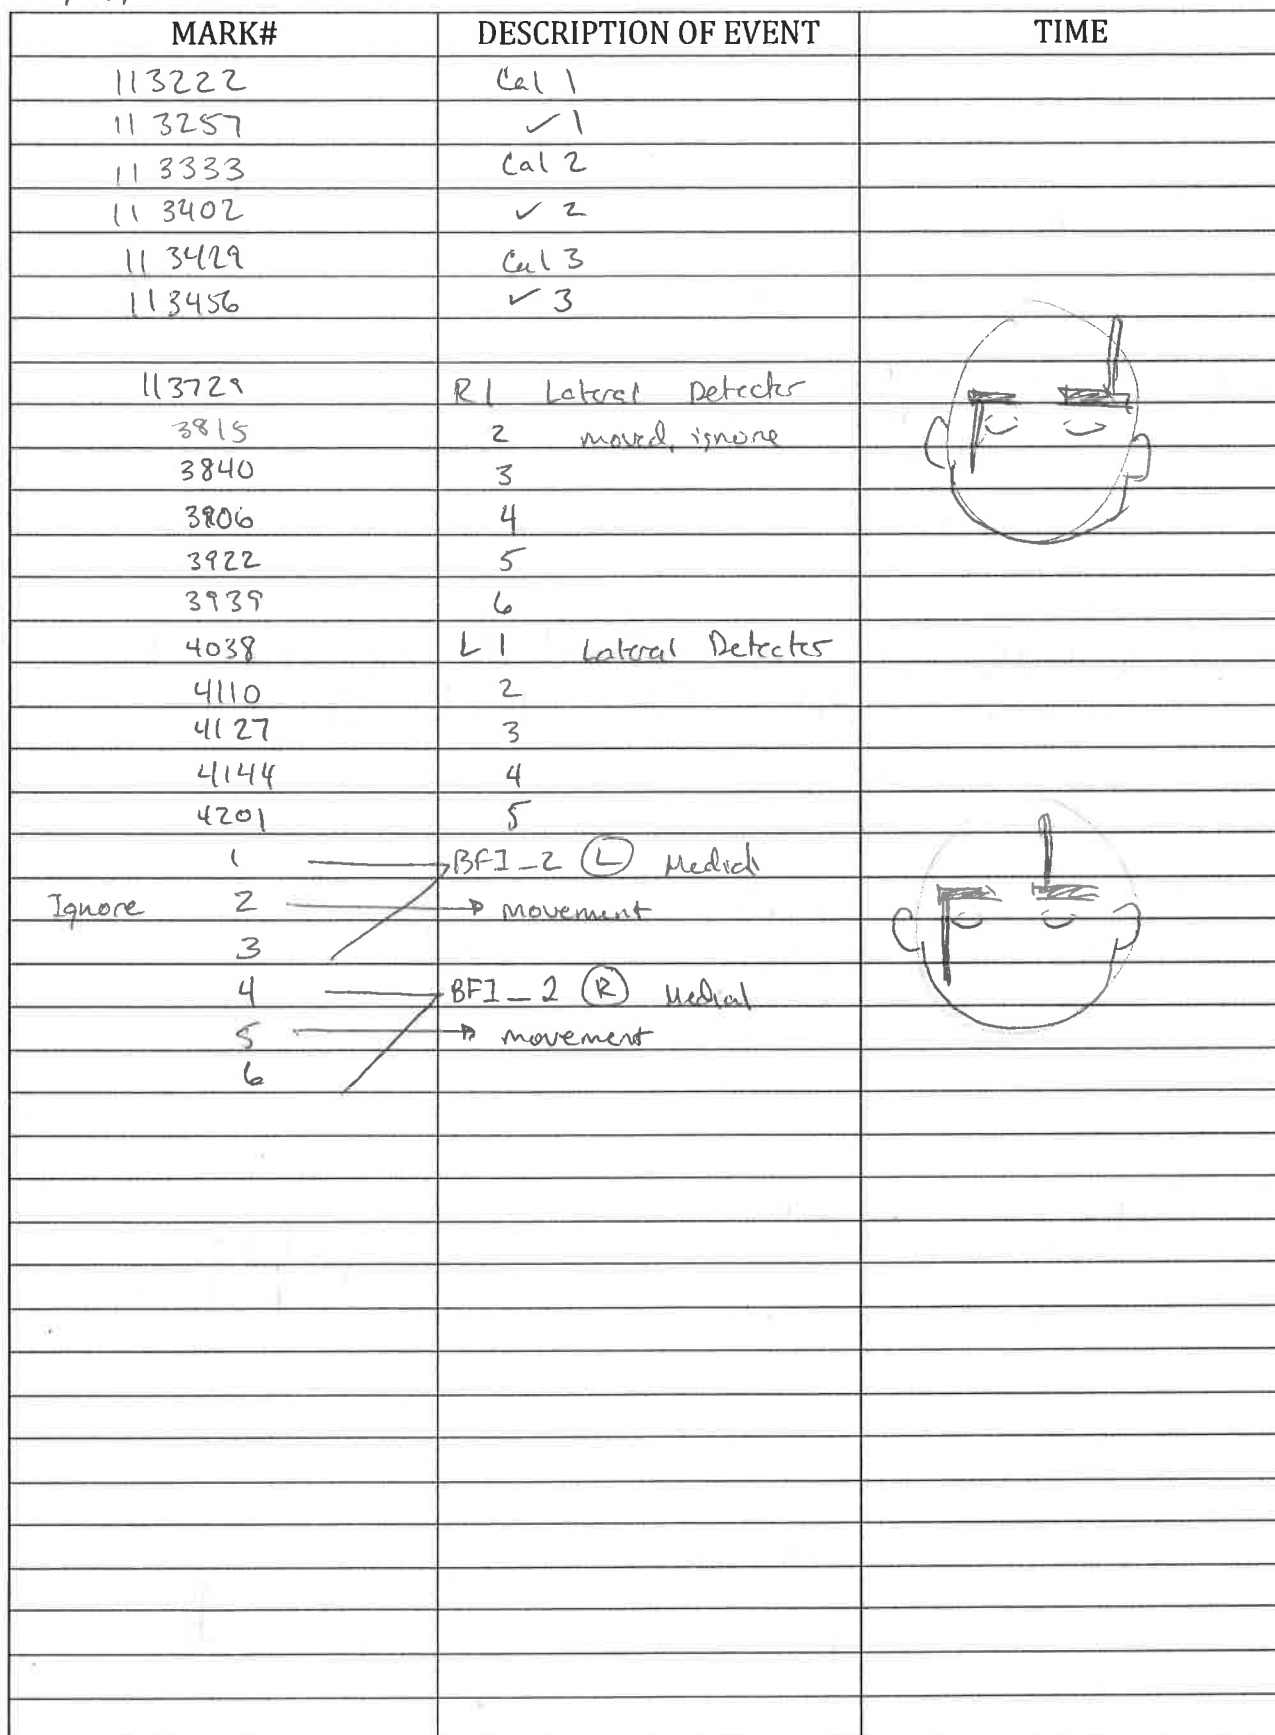 MARK# DESCRIPTION OF EVENT TIME
113222 Cal 1
113257 ✓ 1
113333 Cal 2
113402 ✓ 2
113429 Cal 3
113456 ✓ 3
113729 R1 Lateral Detector
3815 2 moved, ignore
3840 3
3906 4
3922 5
3939 6
4038 L1 Lateral Detector
4110 2
4127 3
4144 4
4201 5
1 BFI_2 (L) Medial
Ignore 2 → movement
3
4 BFI_2 (R) Medial
5 → movement
6